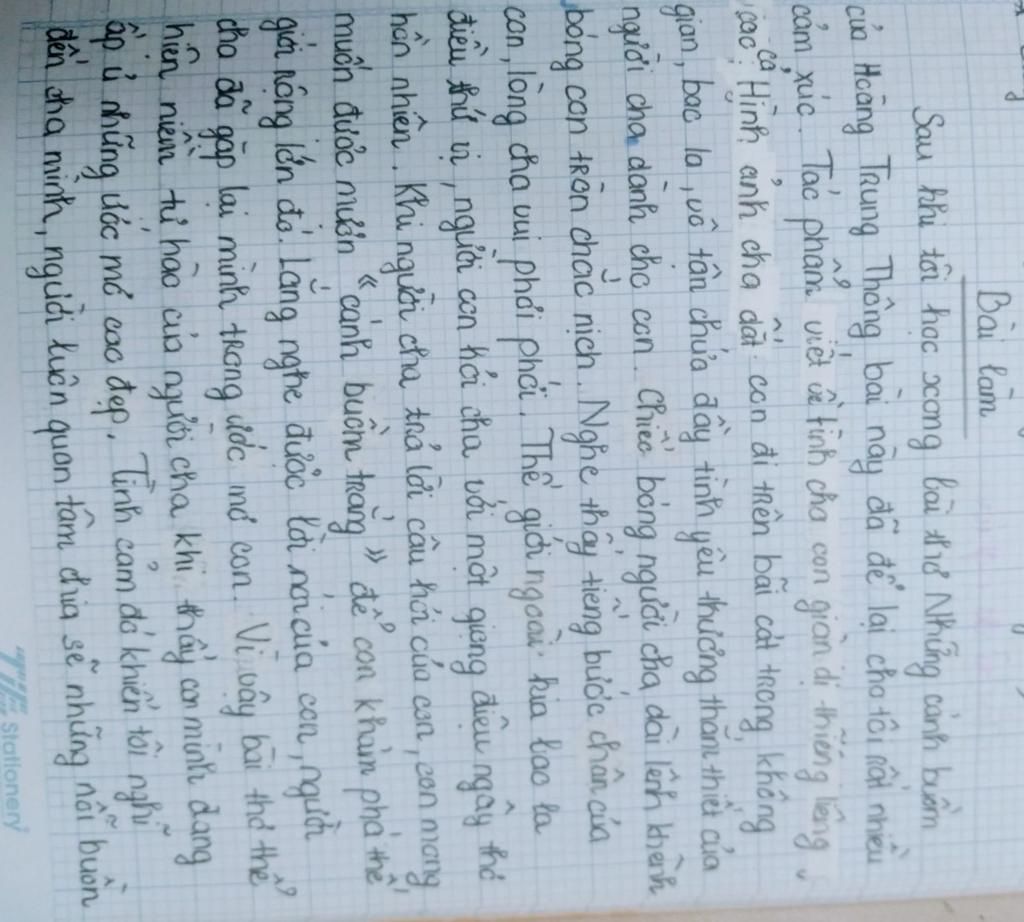 Bài làm
Sau khi tôi học xong bài thơ Những cánh buồm
của Hoàng Trung Thông bài này đã để lại cho tôi rất nhiều
cảm xúc. Tác phẩm viết về tình cha con giản dị thiêng liêng
cao cả. Hình ảnh cha dắt con đi trên bãi cát trong không
gian, bao la, vô tận chứa đầy tình yêu thương thắm thiết của
người cha dành cho con. Chiếc bóng người cha dài lênh khênh
bóng con tròn chắc nịch. Nghe thấy tiếng bước chân của
con, lòng cha vui phơi phới. Thế giới ngoài kia bao la
điều thú vị, người con hỏi cha với một giọng điệu ngây thơ
hồn nhiên. Khi người cha trả lời câu hỏi của con, con mong
muốn được mượn "cánh buồm trắng" để con khám phá thế
giới rộng lớn đó. Lắng nghe được lời nói của con, người
cha đã gặp lại mình trong ước mơ con. Vì vậy bài thơ thể
hiện niềm tự hào của người cha khi thấy con mình đang
ấp ủ những ước mơ cao đẹp. Tình cảm đó khiến tôi nghĩ
đến cha mình, người luôn quan tâm chia sẽ những nỗi buồn
Stationery